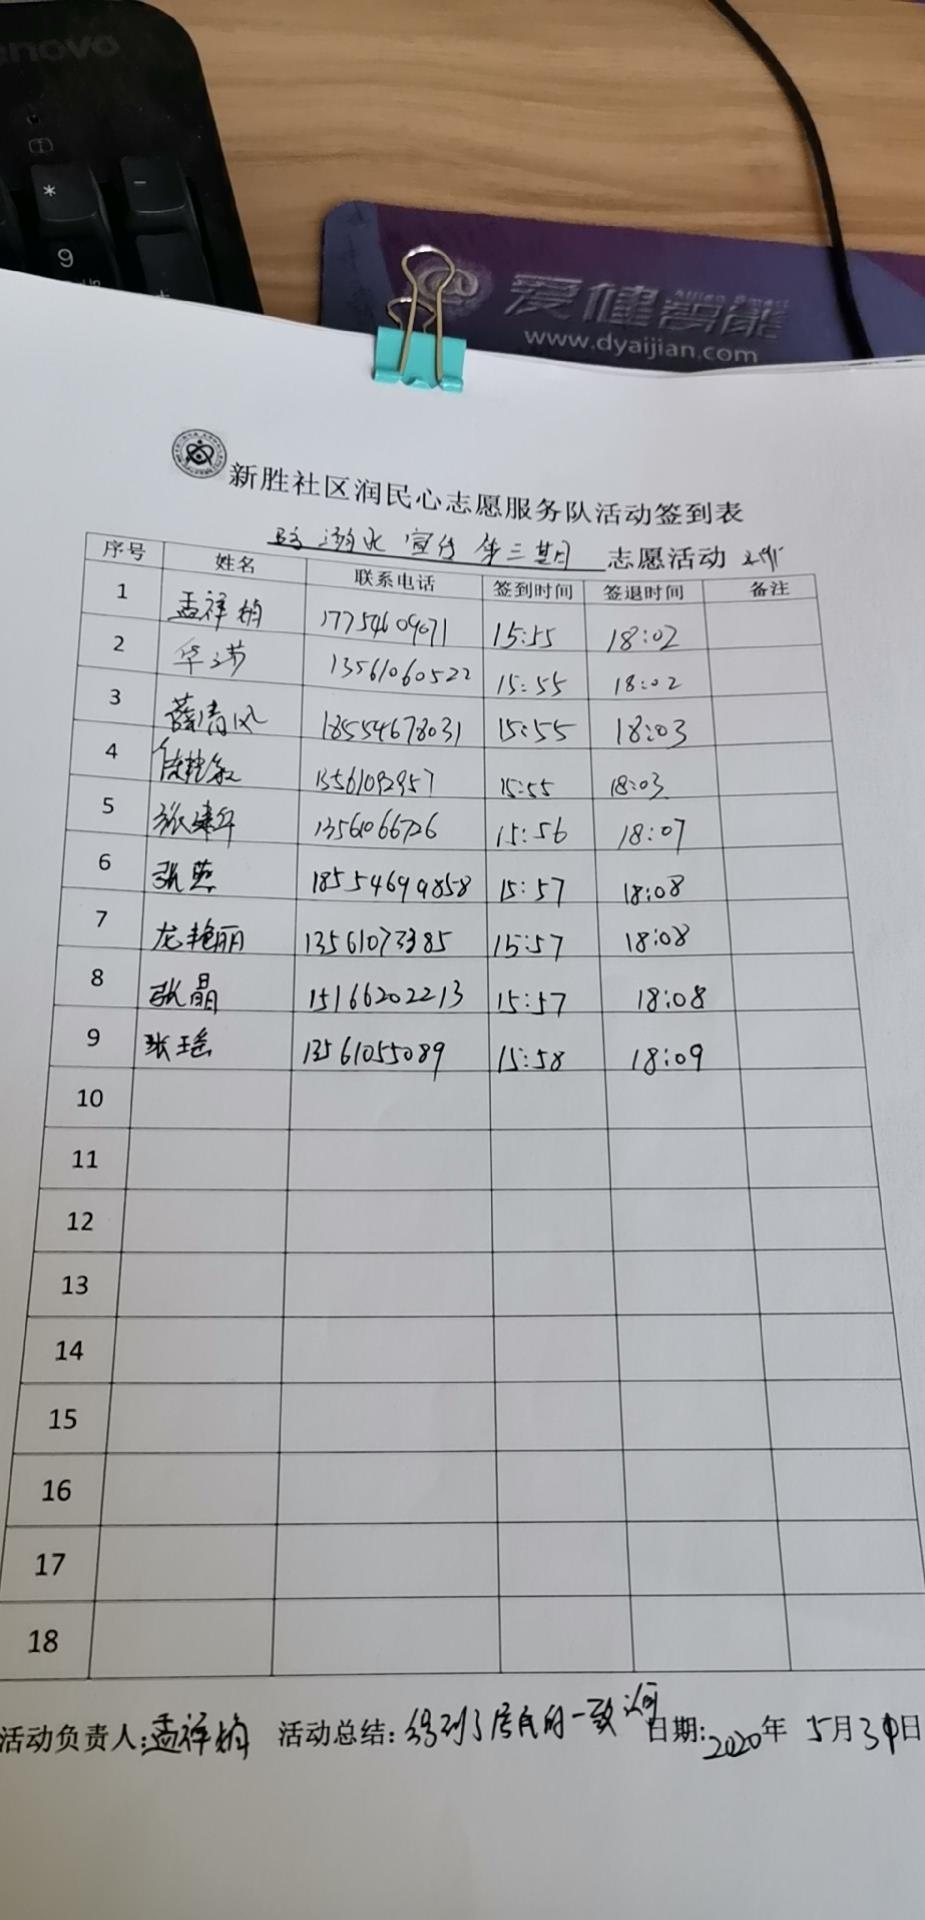 novo
*
-
9
爱健智能
www.dyaijian.com
新胜社区润民心志愿服务队活动签到表
防溺水宣传第三期 志愿活动
序号 姓名 联系电话 签到时间 签退时间 备注
1 孟祥楠 17754609071 15:55 18:02
2 13561060522 15:55 18:02
3 薛清风 18554678031 15:55 18:03
4 13561092957 15:55 18:03
5 张建华 13561066726 15:56 18:07
6 张燕 18554699858 15:57 18:08
7 龙艳丽 13561073385 15:57 18:08
8 张晶 15166202213 15:57 18:08
9 张瑶 13561055089 15:58 18:09
10
11
12
13
14
15
16
17
18
活动负责人:孟祥楠 活动总结:得到了居民的一致 日期:2020年 5月30日